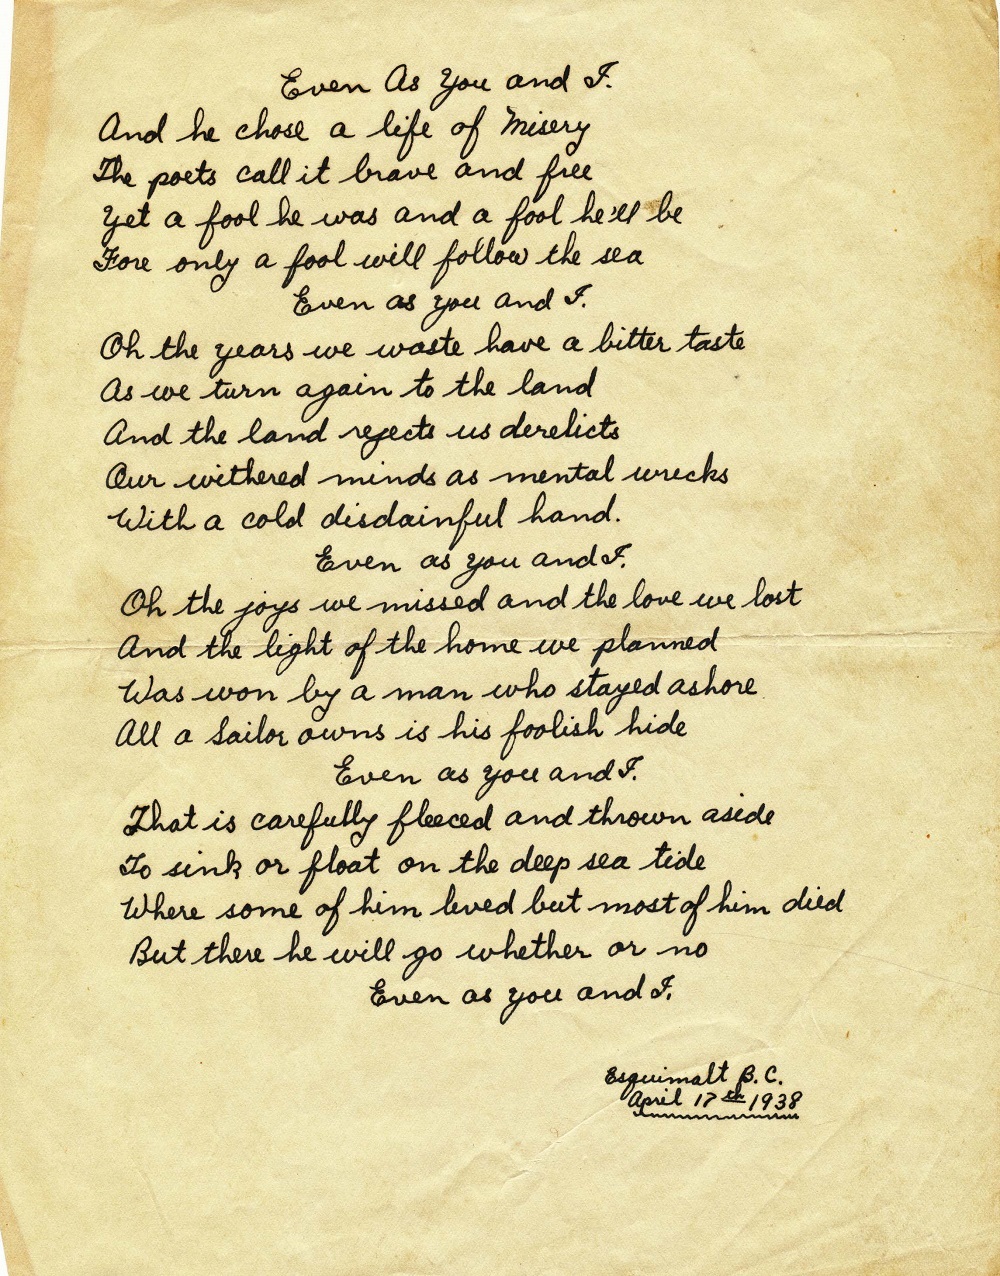 Even As You and I.
And he chose a life of Misery
The poets call it brave and free
Yet a fool he was and a fool he'll be
Fore only a fool will follow the sea
Even as you and I.
Oh the years we waste have a bitter taste
As we turn again to the land
And the land rejects us derelicts
Our withered minds as mental wrecks
With a cold disdainful hand.
Even as you and I.
Oh the joys we missed and the love we lost
And the light of the home we planned
Was won by a man who stayed ashore
All a Sailor owns is his foolish hide
Even as you and I.
That is carefully fleeced and thrown aside
To sink or float on the deep sea tide
Where some of him lived but most of him died
But there he will go whether or no
Even as you and I.
Esquimalt B.C.
April 17th 1938